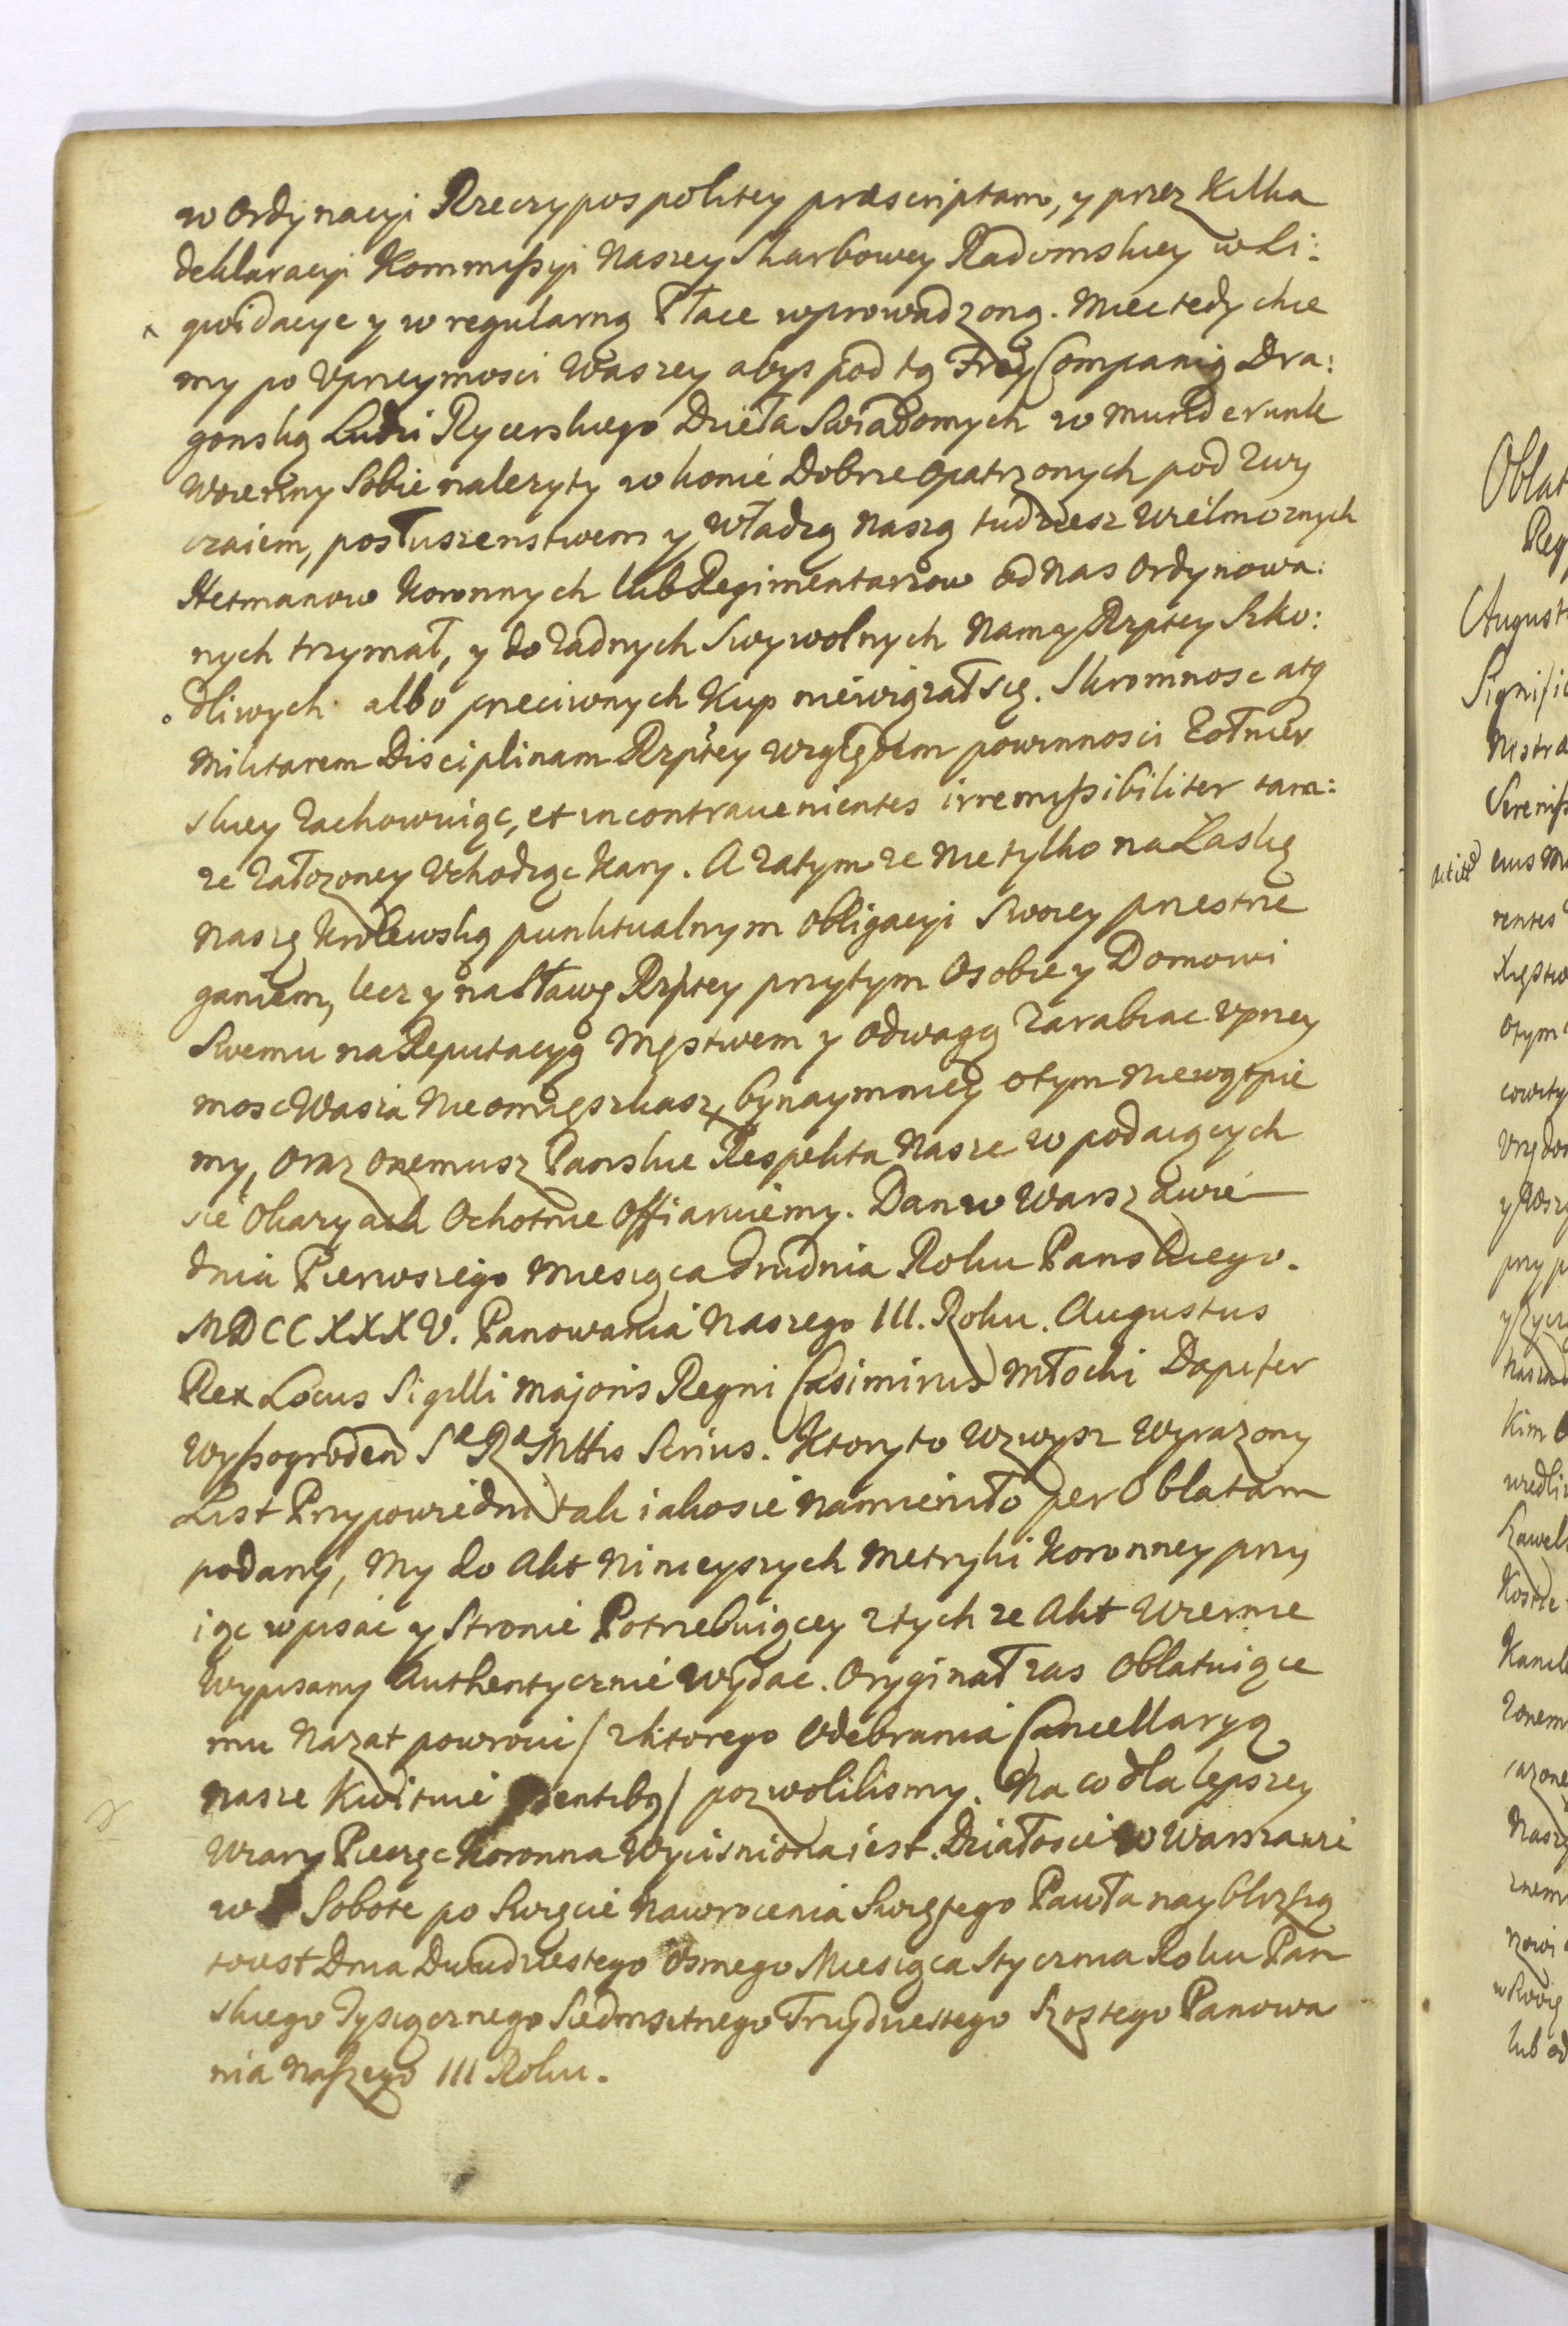 w Ordynacyi Rzeczypospolitey præscriptam, y przez Kilka
deklaracyi Kommissyi Naszey Skarbowey Radomskiey w Li:
qwidacye y w regularną Płace wprowadzoną. Miec tedy chce
my po Vprzeymosci Waszey abys pod tą Frey Companią Dra:
gonską Ludzi Rycerskiego Dzieła Swiadomych w Munderunk
Woienny Sobie nalezyty w konie Dobrze opatrzonych pod Zwy
czaiem, posłuszenstwem y Władzą naszą tudziesz Wielmoznych
Hetmanow Koronnych lub Regimentarzow od Nas Ordynowa:
nych trzymał, y do Zadnych Swywolnych Nam y Rzptey Szko:
dliwych albo przeciwnych Kup niewiązał się. Skromnosc atq
Militarem Disciplinam Rzptey względem powinnosci Zołnier
skiey Zachowuiąc, et in contravenientes irremissibiliter tam:
ze Załozoney Vchodząc Kary. A Zatym ze Nie tylko na Łaskę
Naszę Krolewską punktualnym Obligacyi Swoiey przestrze
ganiem, lecz y na Sławę Rzptey przytym Osobie y Domowi
Swemu na Reputacyą Męstwem y Odwagą Zarabiac Vprzey
mosc Wasza Nieomięszkasz, bynaymniey o tym Niewątpie
my, Oraz Onemusz Panskie Respekta Nasze w podaiących
się Okazyach Ochotnie Offiaruiemy. Dan w Warszawie
dnia Pierwszego Miesiąca Grudnia Roku Panskiego.
MDCCXXXV. Panowania Naszego III. Roku. Augustus
Rex Locus Sigilli Majoris Regni Casimirus Młocki Dapifer
Wyssogroden Sae Rae Mttis Scrius. Ktory to Wzwysz Wyrazony
List Przypowiedni tak iako sie namieniło per Oblatam
podany, My do Akt Ninieyszych Metryki Koronney przy
iąc wpisać y Stronie Potrzebuiącey z tych ze Akt Wiernie
Wypisany Authentycznie Wydac. Oryginał zas Oblatuiące
mu Nazat powrocic (z ktorego Odebrania Cancellaryą
nasze Kwituie Psentibg) pozwolilismy. Na co dla lepszey
Wiary Pieczęc Koronna Wycisniona iest. Działo sie w Warszawie
w Sobote po Swięcie Nawrocenia Swiętego Pawła naybliszsą
to iest Dnia Dwudziestego Osmego Miesiąca Stycznia Roku Pan
skiego Tysiącznego Siedmsetnego Trzydziestego Szostego Panowa
nia Naszego III Roku.
Oblat
Reg
August
Signific
Nostra
Sereniss
rentes
otym
cowity
y Wsz
przyp
Kim
Kancel
zonem
Nasz
znem
lub od